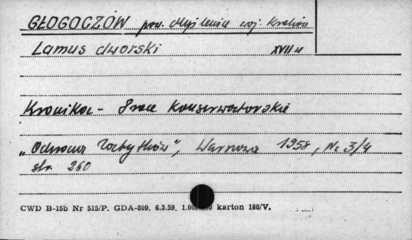 GŁOGOCZÓW pow. Myślenice woj. Kraków
Lamus dworski XVII w
Kronika - Prace Konserwatorskie
"Ochrona Zabytków", Warszawa 1958, Nr 3/4
str. 260
CWD B-15b Nr 515/P. GDA-809. 6.3.59. karton 180/V.